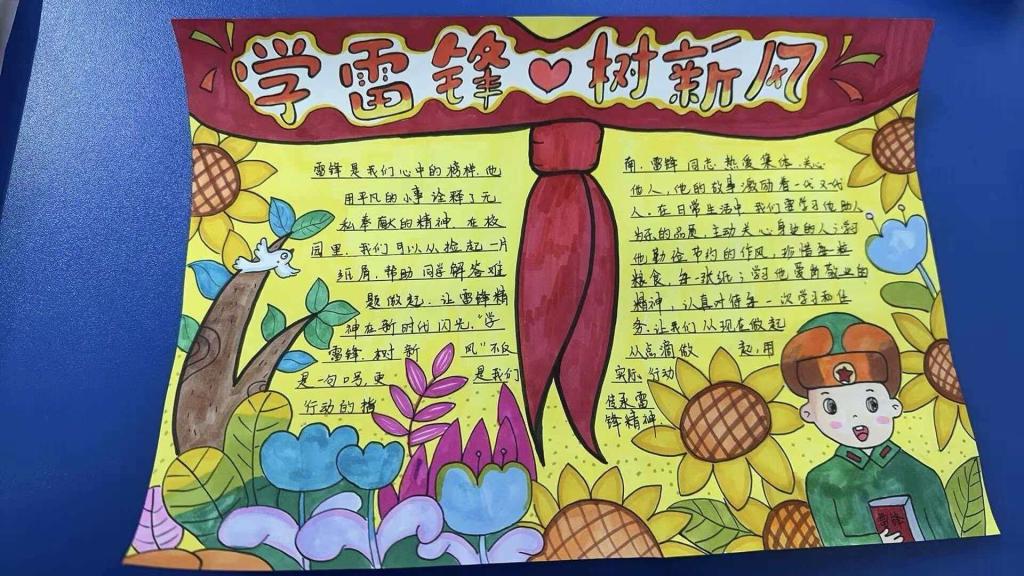 学雷锋 树新风
雷锋是我们心中的榜样.他
用平凡的小事诠释了无
私奉献的精神.在校
园里.我们可以从捡起一片
纸屑.帮助同学解答难
题做起.让雷锋精
神在新时代闪光."学
雷锋 树新风"不仅
是一句口号,更是我们
行动的指
南.雷锋同志热爱集体.关心
他人,他的故事激励着一代又一代
人.在日常生活中我们要学习他助人
为乐的品质.主动关心身边的人;学习
他勤俭节约的作风,珍惜每一粒
粮食.每一张纸;学习他爱岗敬业的
精神,认真对待每一次学习和任
务.让我们从现在做起
从点滴做起,用
实际行动
传承雷
锋精神
雷锋